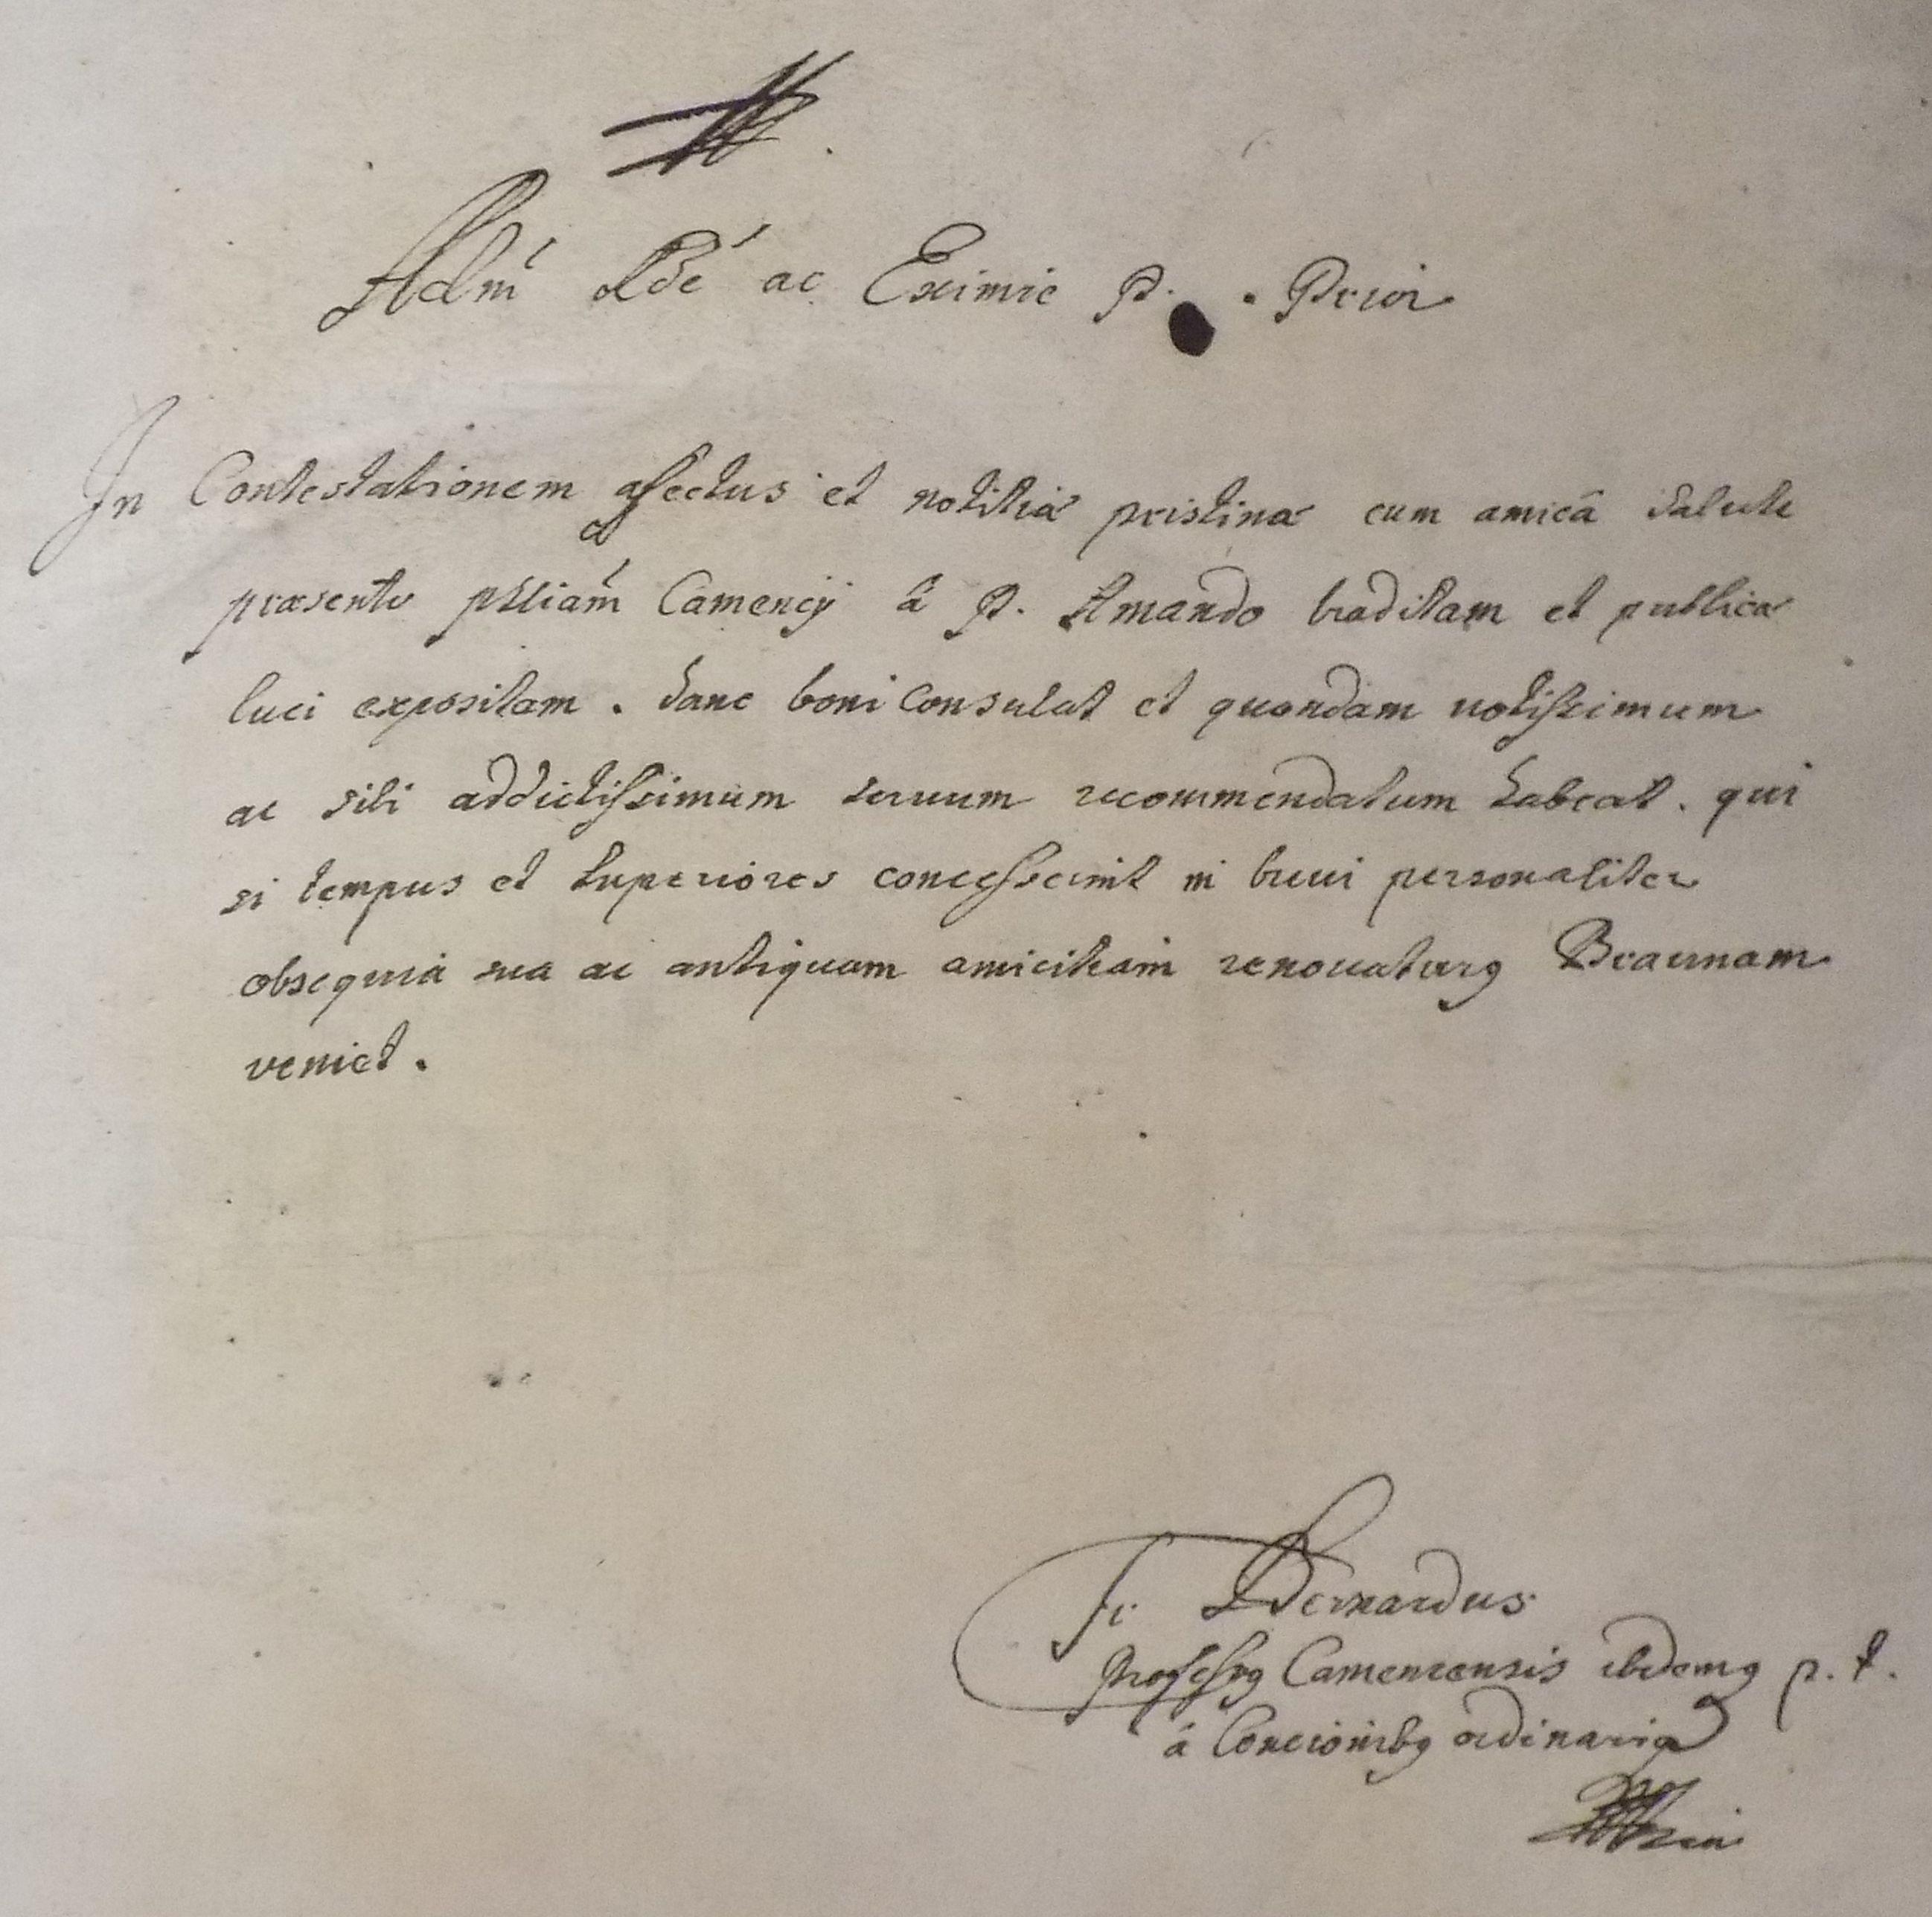 Adm̄ Rde ac Eximie P. . Prior
In Contestationem afectus et notitiæ pristinæ cum amicâ salute
præsento Camencÿ â P. Amando traditam et publicæ
luci expositam . sane boni consulat et quondam notissimum
ac sibi addictissimum seruum recommendatum habeat . qui
si tempus et superiores concesserint in breui personaliter
obsequia sua ac antiquam amicitiam renouaturq Braunam
veniet .
Fr. Bernardus
Professq Camencensis ibidemq p. t.
â Concionibq ordinariq